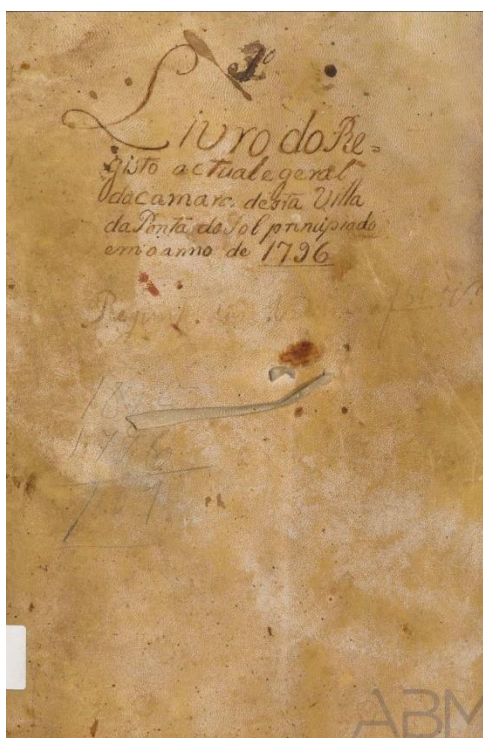 3º
Livro do Re=
gisto actual e geral
da camara desta Villa
da Ponta do Sol principiado
em o anno de 1796
ABM